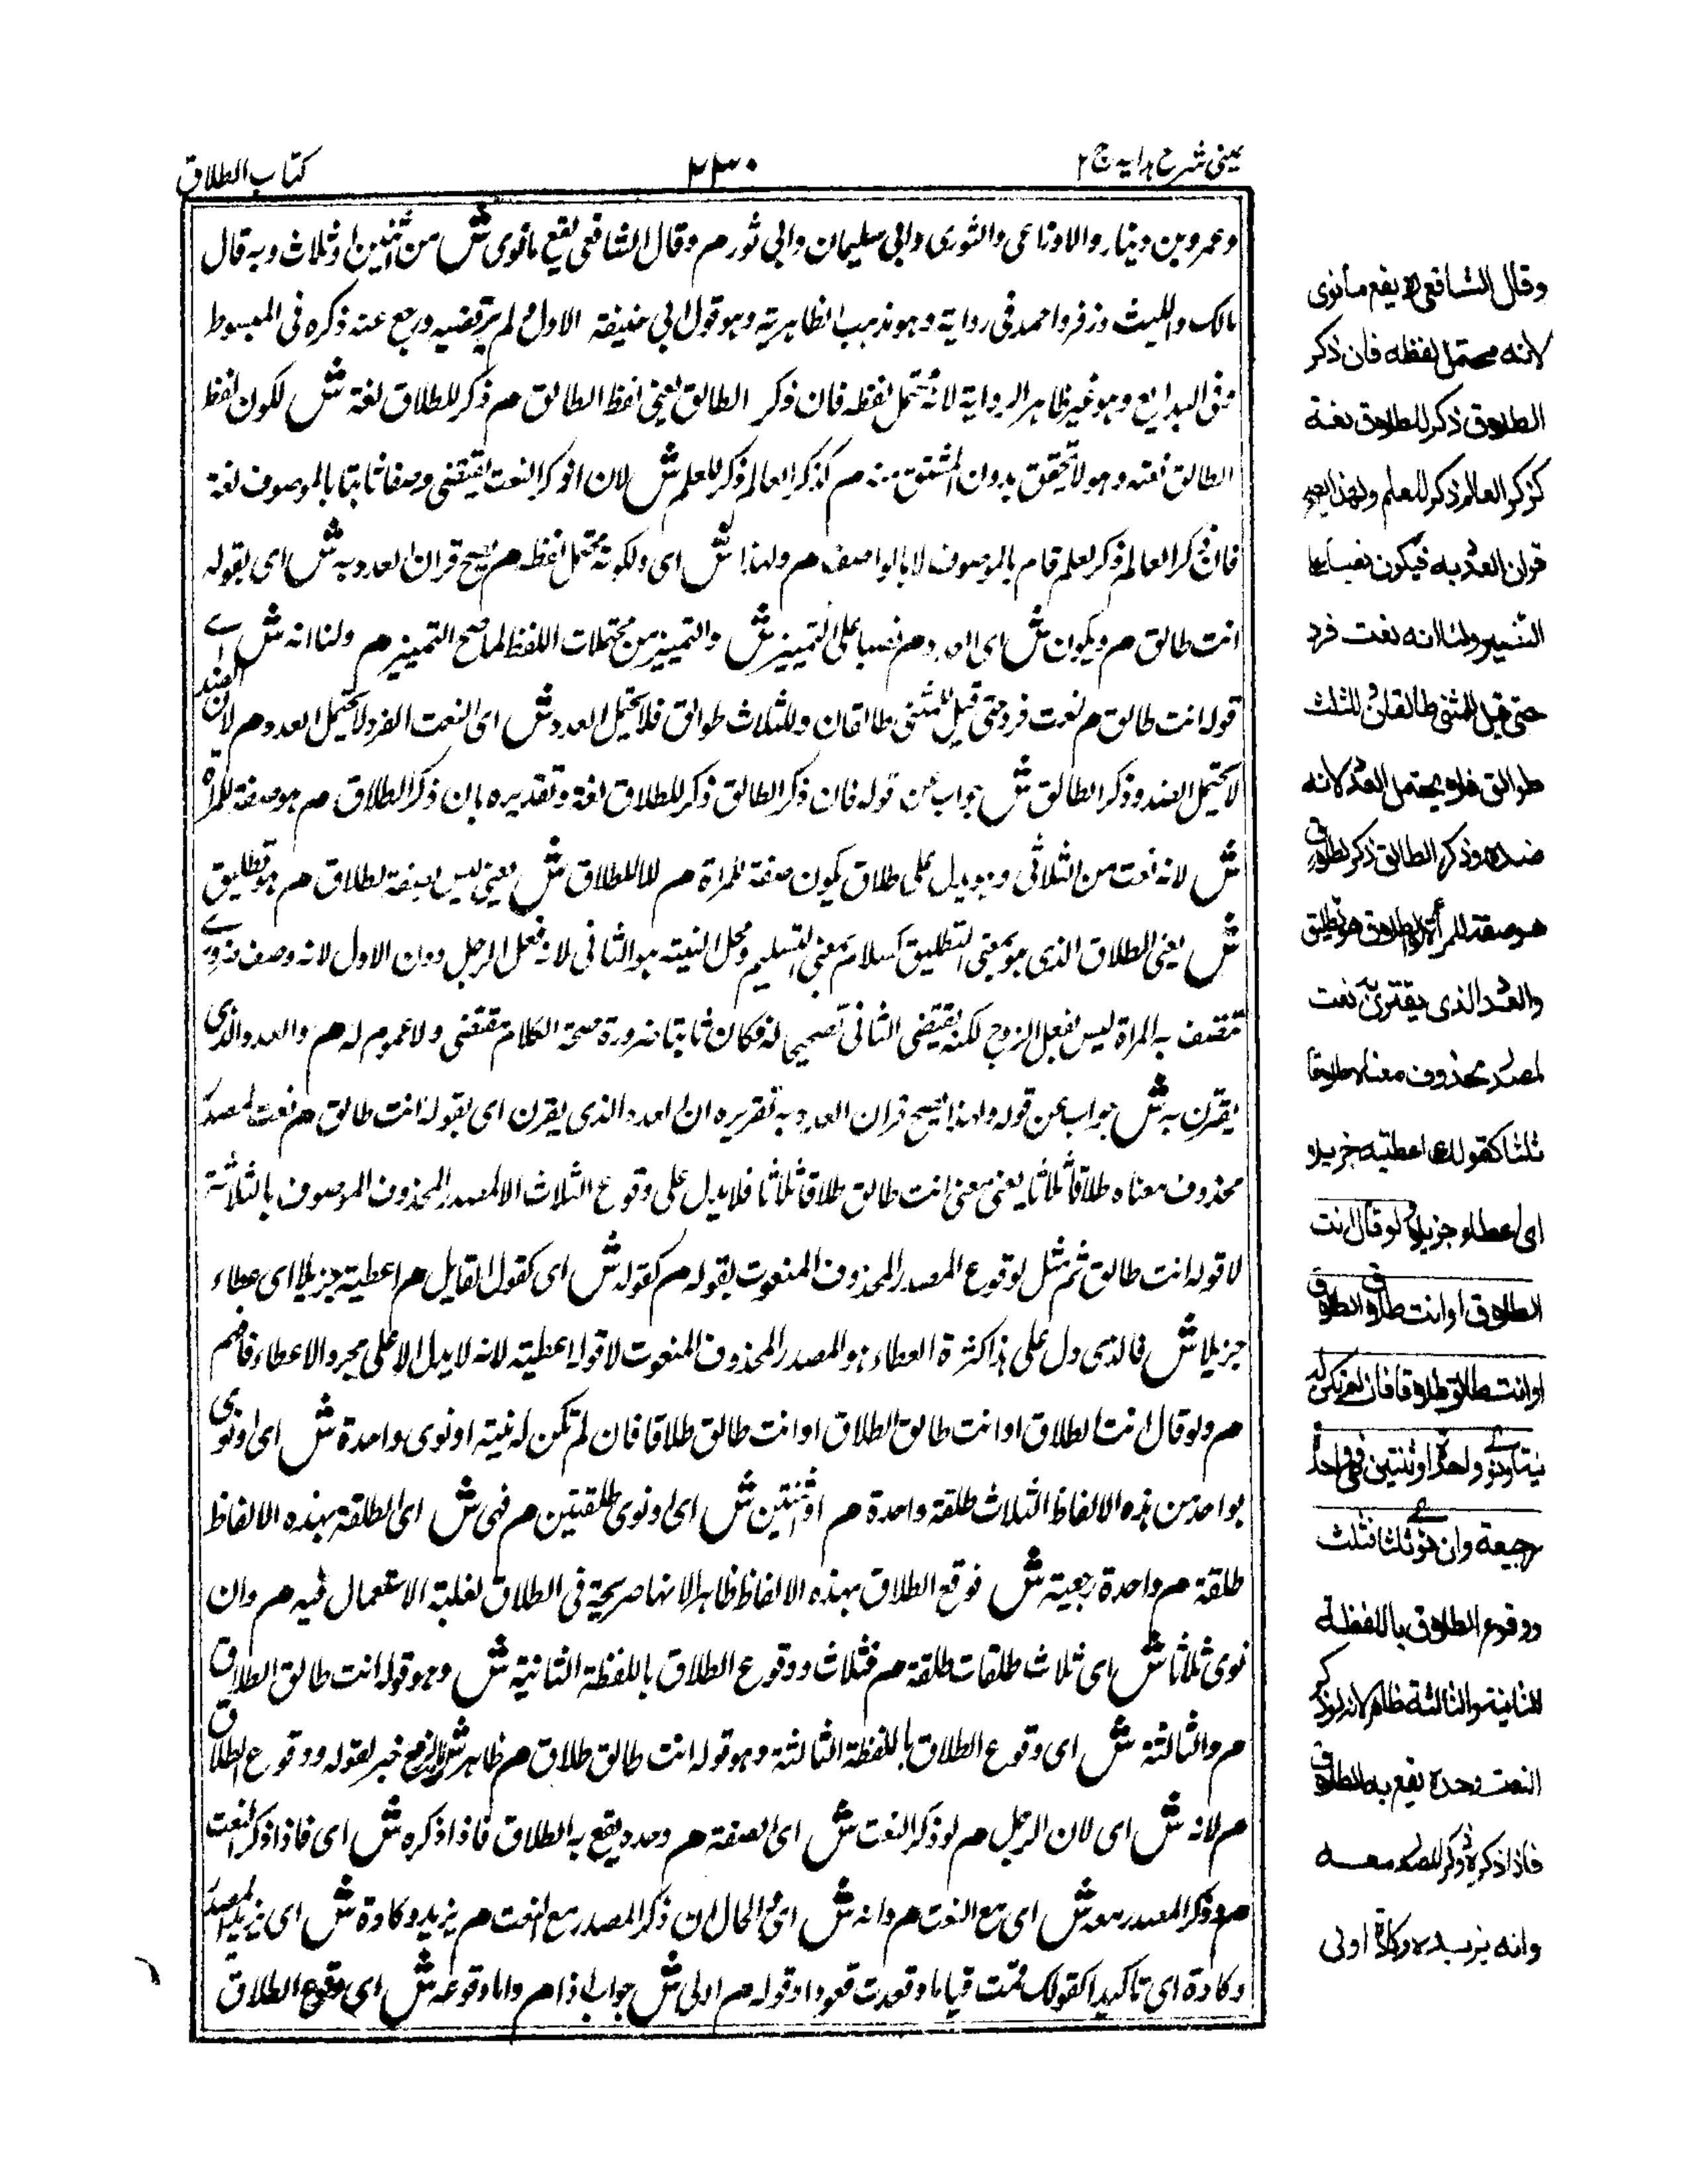 عینی شرح هدایه ج ۲
۲۳۰
کتاب الطلاق
وعمرو بن دینار والاوزاعی والثوری وابی سلیمان وابی ثور م وقال الشافعی یقع ما نوی ش من اثنین او ثلاث وبه قال
مالک واللیث وزفر واحمد فی روایة وهو مذهب الظاهریة وهو قول ابی حنیفة الاول ثم رجع عنه ذکره فی المبسوط
وفی البدایع وهو غیر ظاهر الروایة لانه محتمل لفظه فان ذکر الطالق یعنی لفظ الطالق م ذکر للطلاق لغة ش لکون لفظ
الطالق نعته وهو لا یتحقق بدون المشتق منه م کذکر العالم ذکر للعلم ش لان ذکر النعت یقتضی وصفا ثابتا بالموصوف لغة
فان ذکر العالم ذکر لعلم قام بالموصوف لا بالواصف م ولهذا ش ای ولکونه محتمل لفظه م یصح قران العدد به ش ای بقوله
انت طالق م ویکون ش ای العدد م نصبا علی التمییز ش والتمییز من محتملات اللفظ لما صح التمییز م ولنا انه ش اے
قوله انت طالق م نعت فرد حتی قیل للمثنی طالقان وللثلاث طوالق فلا یحتمل العدد ش ای النعت الفرد لا یحتمل العدد م لان الضد
لا یحتمل الضد وذکر الطالق ش جواب عن قوله فان ذکر الطالق ذکر للطلاق لغة وتقدیره بان ذکر الطلاق م هو صفة للمراة
ش لانه نعت من الثلاثی وهو یدل علی طلاق یکون صفة للمراة م لا للطلاق ش یعنی لیس بصفة لطلاق م هو تطلیق
ش یعنی الطلاق الذی هو بمعنی التطلیق کسلام بمعنی التسلیم ومحل النیة هو الثانی لانه فعل الرجل دون الاول لانه وصف ضروری
تتصف به المراة لیس بفعل الزوج لکنه یقتضی الثانی تصحیحا له فکان ثابتا ضرورة صحة الکلام مقتضی ولا عموم له م والعدد الذی
یقترن به ش جواب عن قوله ولهذا یصح قران العدد به تقریره ان العدد الذی یقرن ای بقوله انت طالق م نعت لمصدر
محذوف معناه طلاقا ثلاثا یعنی معنی انت طالق طلاقا ثلاثا فلا یدل علی وقوع الثلاث الا المصدر المحذوف الموصوف بالثلاثة
لا قوله انت طالق ثم مثل لوقوع المصدر المحذوف المنعوت بقوله م کقوله ش ای کقول القایل م اعطیته جزیلا ای عطاء
جزیلا ش فالذی دل علی هذا کثرة العطاء هو المصدر المحذوف المنعوت لا قوله اعطیته لانه لا یدل الا علی مجرد الاعطاء فافهم
م ولو قال انت الطلاق او انت طالق الطلاق او انت طالق طلاقا فان لم تکن له نیة او نوی واحدة ش ای او نوی
بواحد من هذه الالفاظ الثلاث طلقة واحدة م او ثنتین ش ای او نوی طلقتین م فهی ش ای الطلقة بهذه الالفاظ
طلقة م واحدة رجعیة ش فوقع الطلاق بهذه الالفاظ ظاهر لانها صریحة فی الطلاق لغلبة الاستعمال فیه م وان
نوی ثلاثا ش ای ثلاث طلقات طلقة م فثلاث ووقوع الطلاق باللفظة الثانیة ش وهو قوله انت طالق الطلاق
م والثالثة ش ای وقوع الطلاق باللفظة الثالثة وهو قوله انت طالق طلاق م ظاهر ش بالرفع خبر لقوله ووقوع الطلاق
م لانه ش ای لان الرجل م لو ذکر النعت ش ای الصفة م وحده یقع به الطلاق فاذا ذکره ش ای فاذا ذکر النعت
م وذکر المصدر معه ش ای مع النعت م وانه ش ای والحال ان ذکر المصدر مع النعت م یزیده وکادة ش ای یزید المصدر
وکادة ای تاکیدا کقولک قمت قیاما وقعدت قعودا وقوله م اولی ش جواب اذا م واما وقوعه ش ای وقوع الطلاق
وقال الشافعی ره یقع ما نوی
لانه محتمل لفظه فان ذکر
الطلاق ذکر للطلاق لغة
کذکر العالم ذکر للعلم ولهذا یصح
قران العدد به فیکون نصبا علی
التفسیر ولنا انه نعت فرد
حتی قیل للمثنی طالقان وللثلث
طوالق فلا یحتمل العدد لانه
ضده وذکر الطالق ذکر لطلاق
هو صفة للمرأة لا لطلاق هو تطلیق
والعدد الذی یقترن به نعت
لمصدر محذوف معناه طلاقا
ثلثا کقولک اعطیته جزیلا
ای اعطاء جزیلا ولو قال انت
الطلاق او انت طالق الطلاق
او انت طالق طلاقا فان لم تکن له
نیة او نوی واحدة او ثنتین فهی واحدة
رجعیة وان نوی ثلثا فثلث
ووقوع الطلاق باللفظة
الثانیة والثالثة ظاهر لانه لو ذکر
النعت وحده یقع به الطلاق
فاذا ذکره وذکر المصدر معه
وانه یزیده وکادة اولی